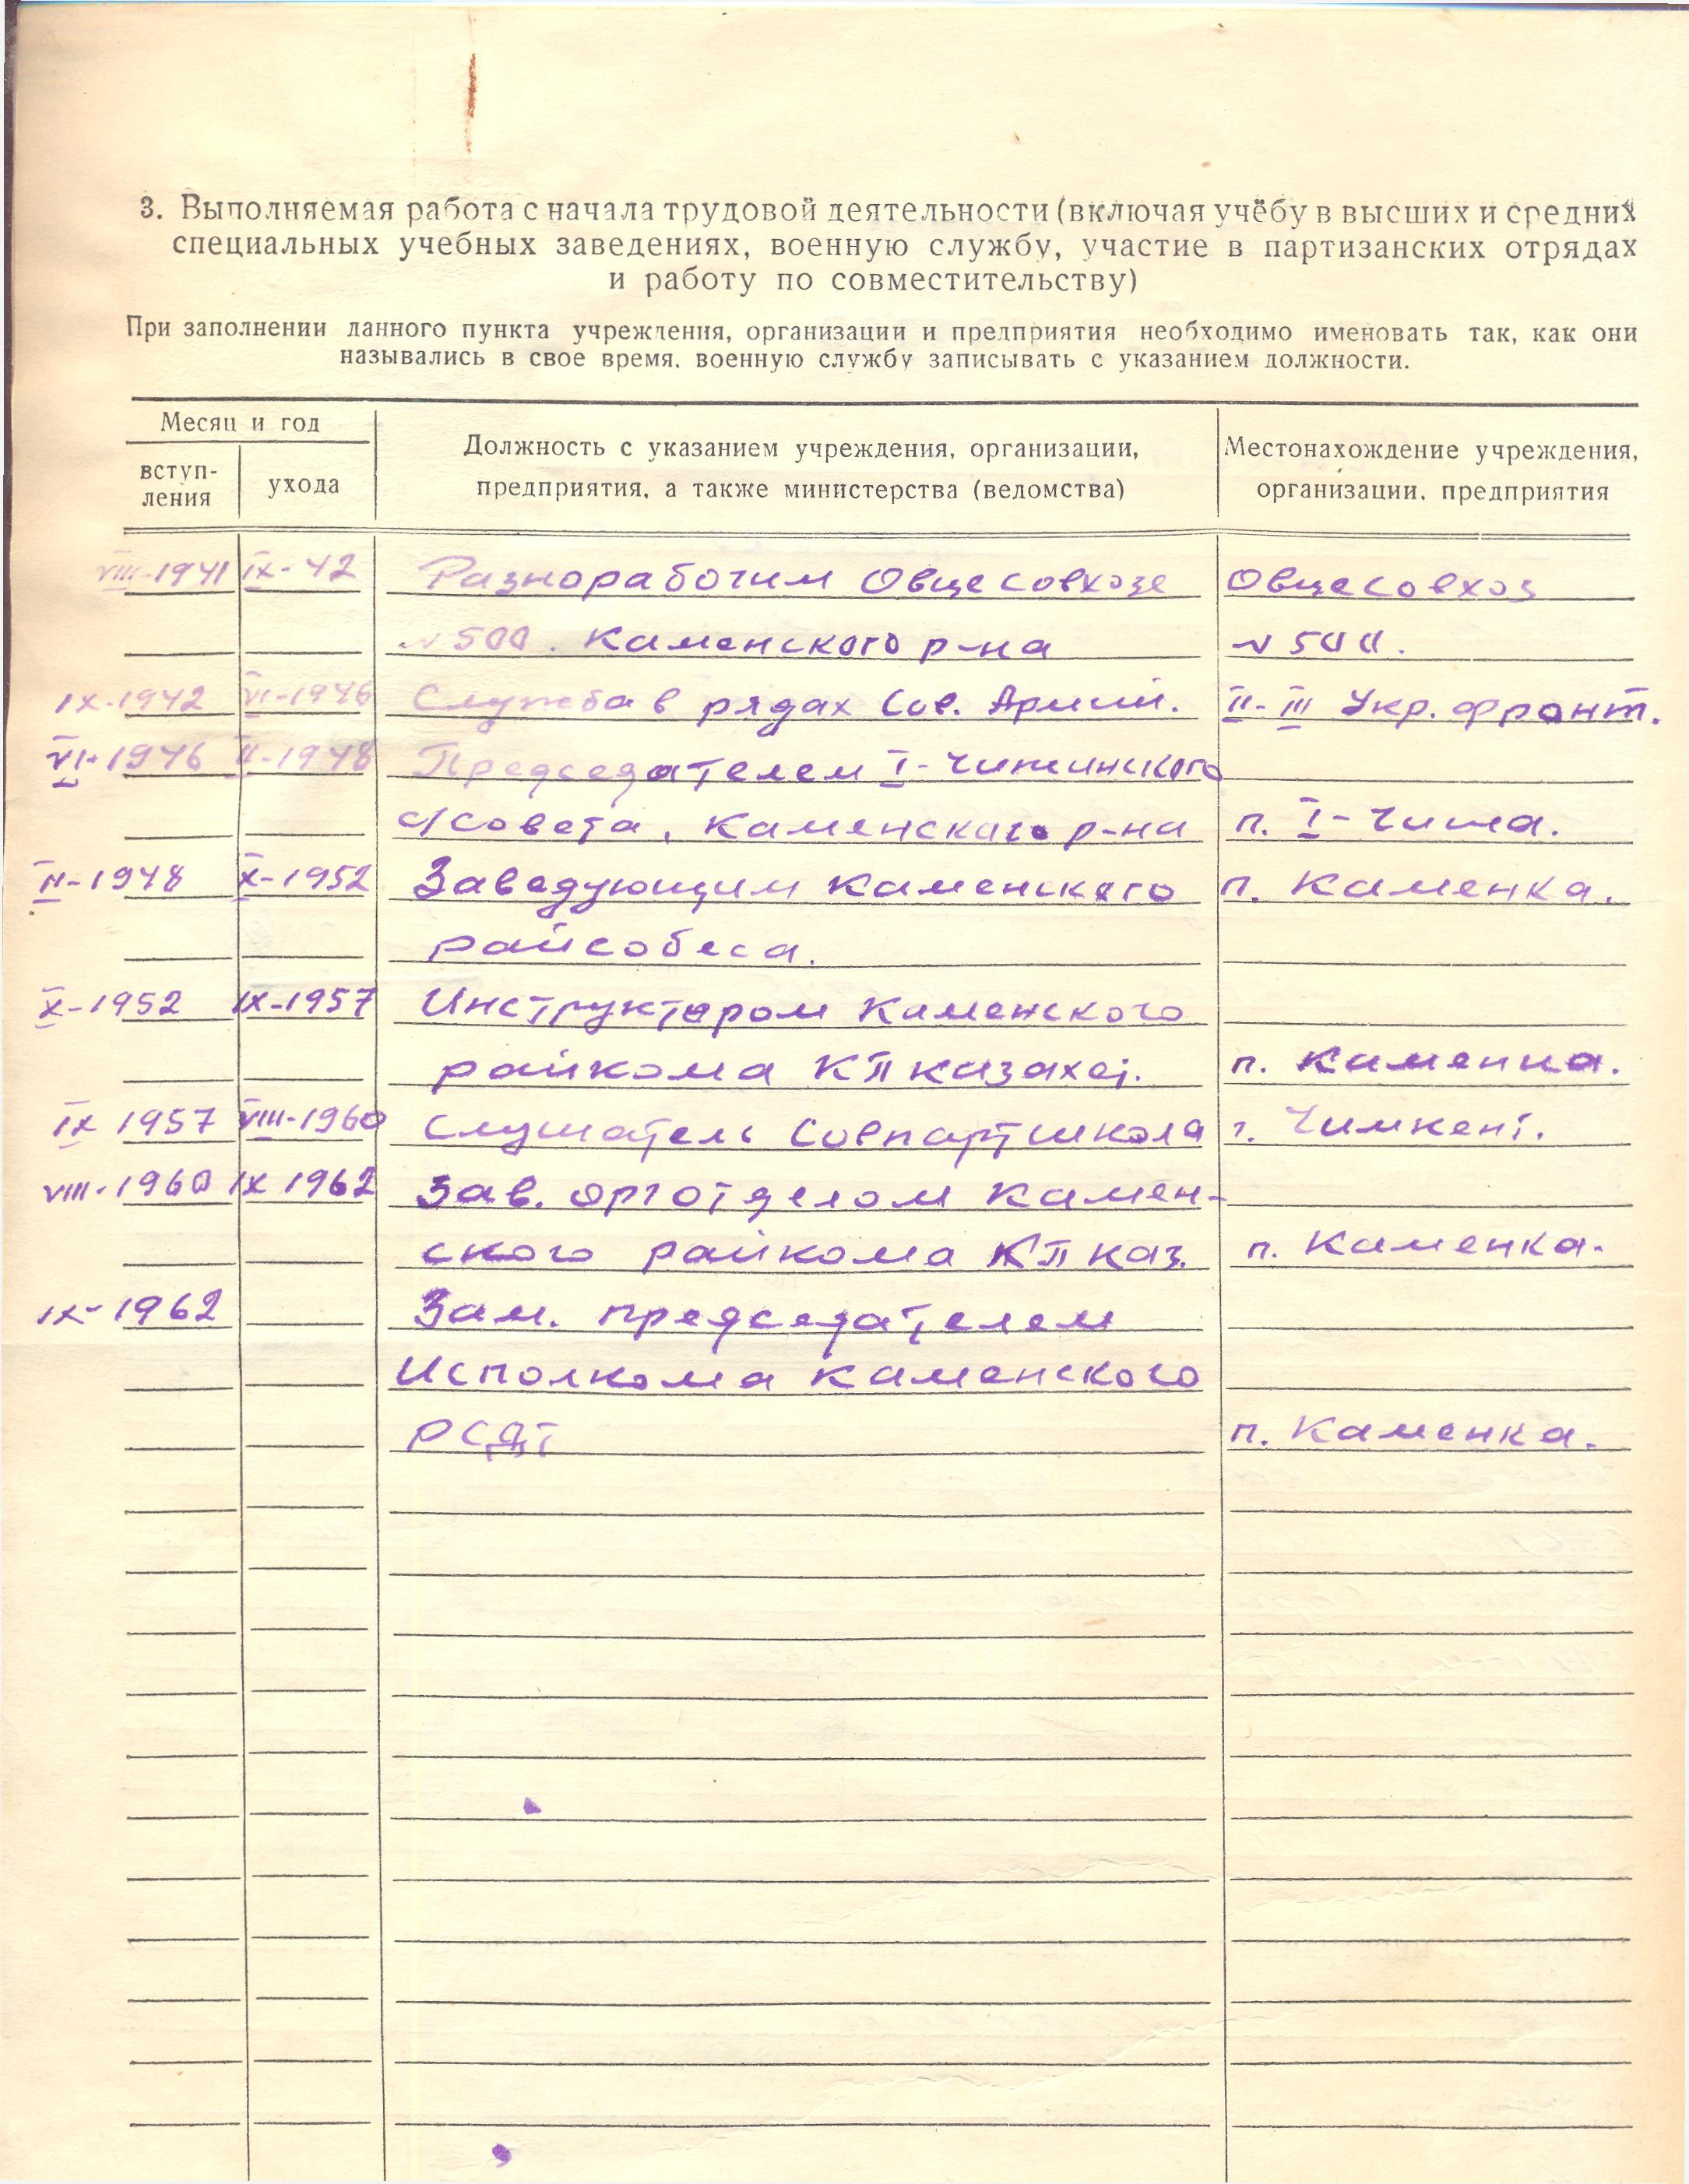 3. Выполняемая работа с начала трудовой деятельности (включая учёбу в высших и средних
специальных учебных заведениях, военную службу, участие в партизанских отрядах
и работу по совместительству)
При заполнении данного пункта учреждения, организации и предприятия необходимо именовать так, как они
назывались в свое время, военную службу записывать с указанием должности.
Месяц и год
вступ-
ления
ухода
Должность с указанием учреждения, организации,
предприятия, а также министерства (ведомства)
Местонахождение учреждения,
организации, предприятия
VIII-1941 IX-42 Разнорабочим Овцесовхозе Овцесовхоз
№ 500. Каменского р-на № 500.
IX-1942 VI-1946 Служба в рядах Сов. Армии. II-III Укр. фронт.
VI-1946 II-1948 Председателем I-Читинского
с/совета, Каменского р-на п. I-Чита.
II-1948 X-1952 Заведующим Каменского п. Каменка.
райсобеса.
X-1952 IX-1957 Инструктором Каменского
райкома КП Казахст. п. Каменка.
IX 1957 VIII-1960 Слушатель Совпартшкола г. Чимкент.
VIII-1960 IX 1962 Зав. орготделом Камен-
ского райкома КП Каз. п. Каменка.
IX-1962 Зам. председателем
Исполкома Каменского
РСДТ п. Каменка.